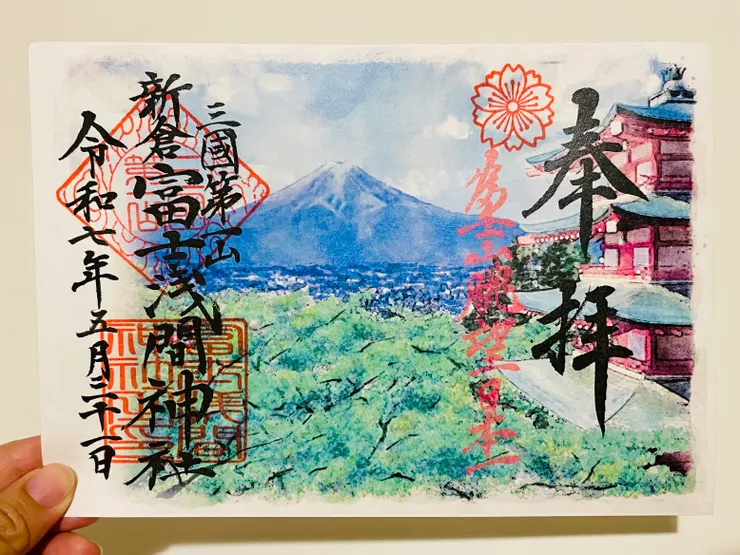 奉拝
富士山眺望日本一
三國第一山
新倉富士浅間神社
令和七年五月二十一日